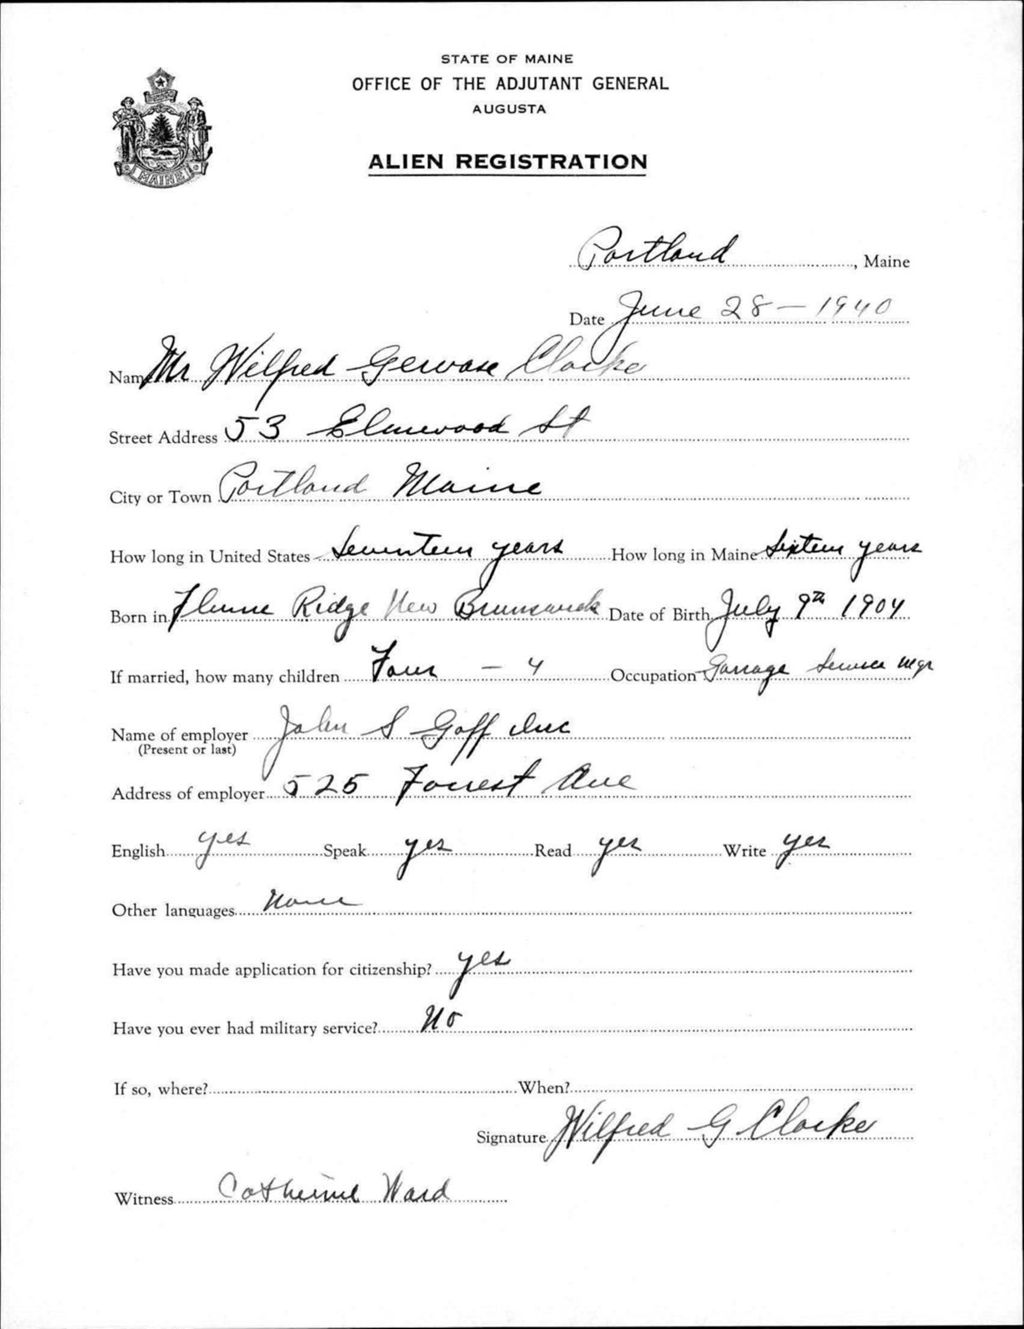 STATE OF MAINE
OFFICE OF THE ADJUTANT GENERAL
AUGUSTA
MAINE
ALIEN REGISTRATION
Portland, Maine
Date June 28 - 1940
Name Mr Wilfred Gervase Clarke
Street Address 53 Elmwood St
City or Town Portland Maine
How long in United States Seventeen years How long in Maine Sixteen years
Born in Ridge New Brunswick Date of Birth July 9th 1904
If married, how many children Four - 4 Occupation Garrage Service Mgr
Name of employer John S Goff Inc
(Present or last)
Address of employer 525 Forrest Ave
English yes Speak yes Read yes Write yes
Other languages None
Have you made application for citizenship? yes
Have you ever had military service? No
If so, where? When?
Signature Wilfred G Clarke
Witness Catherine Ward